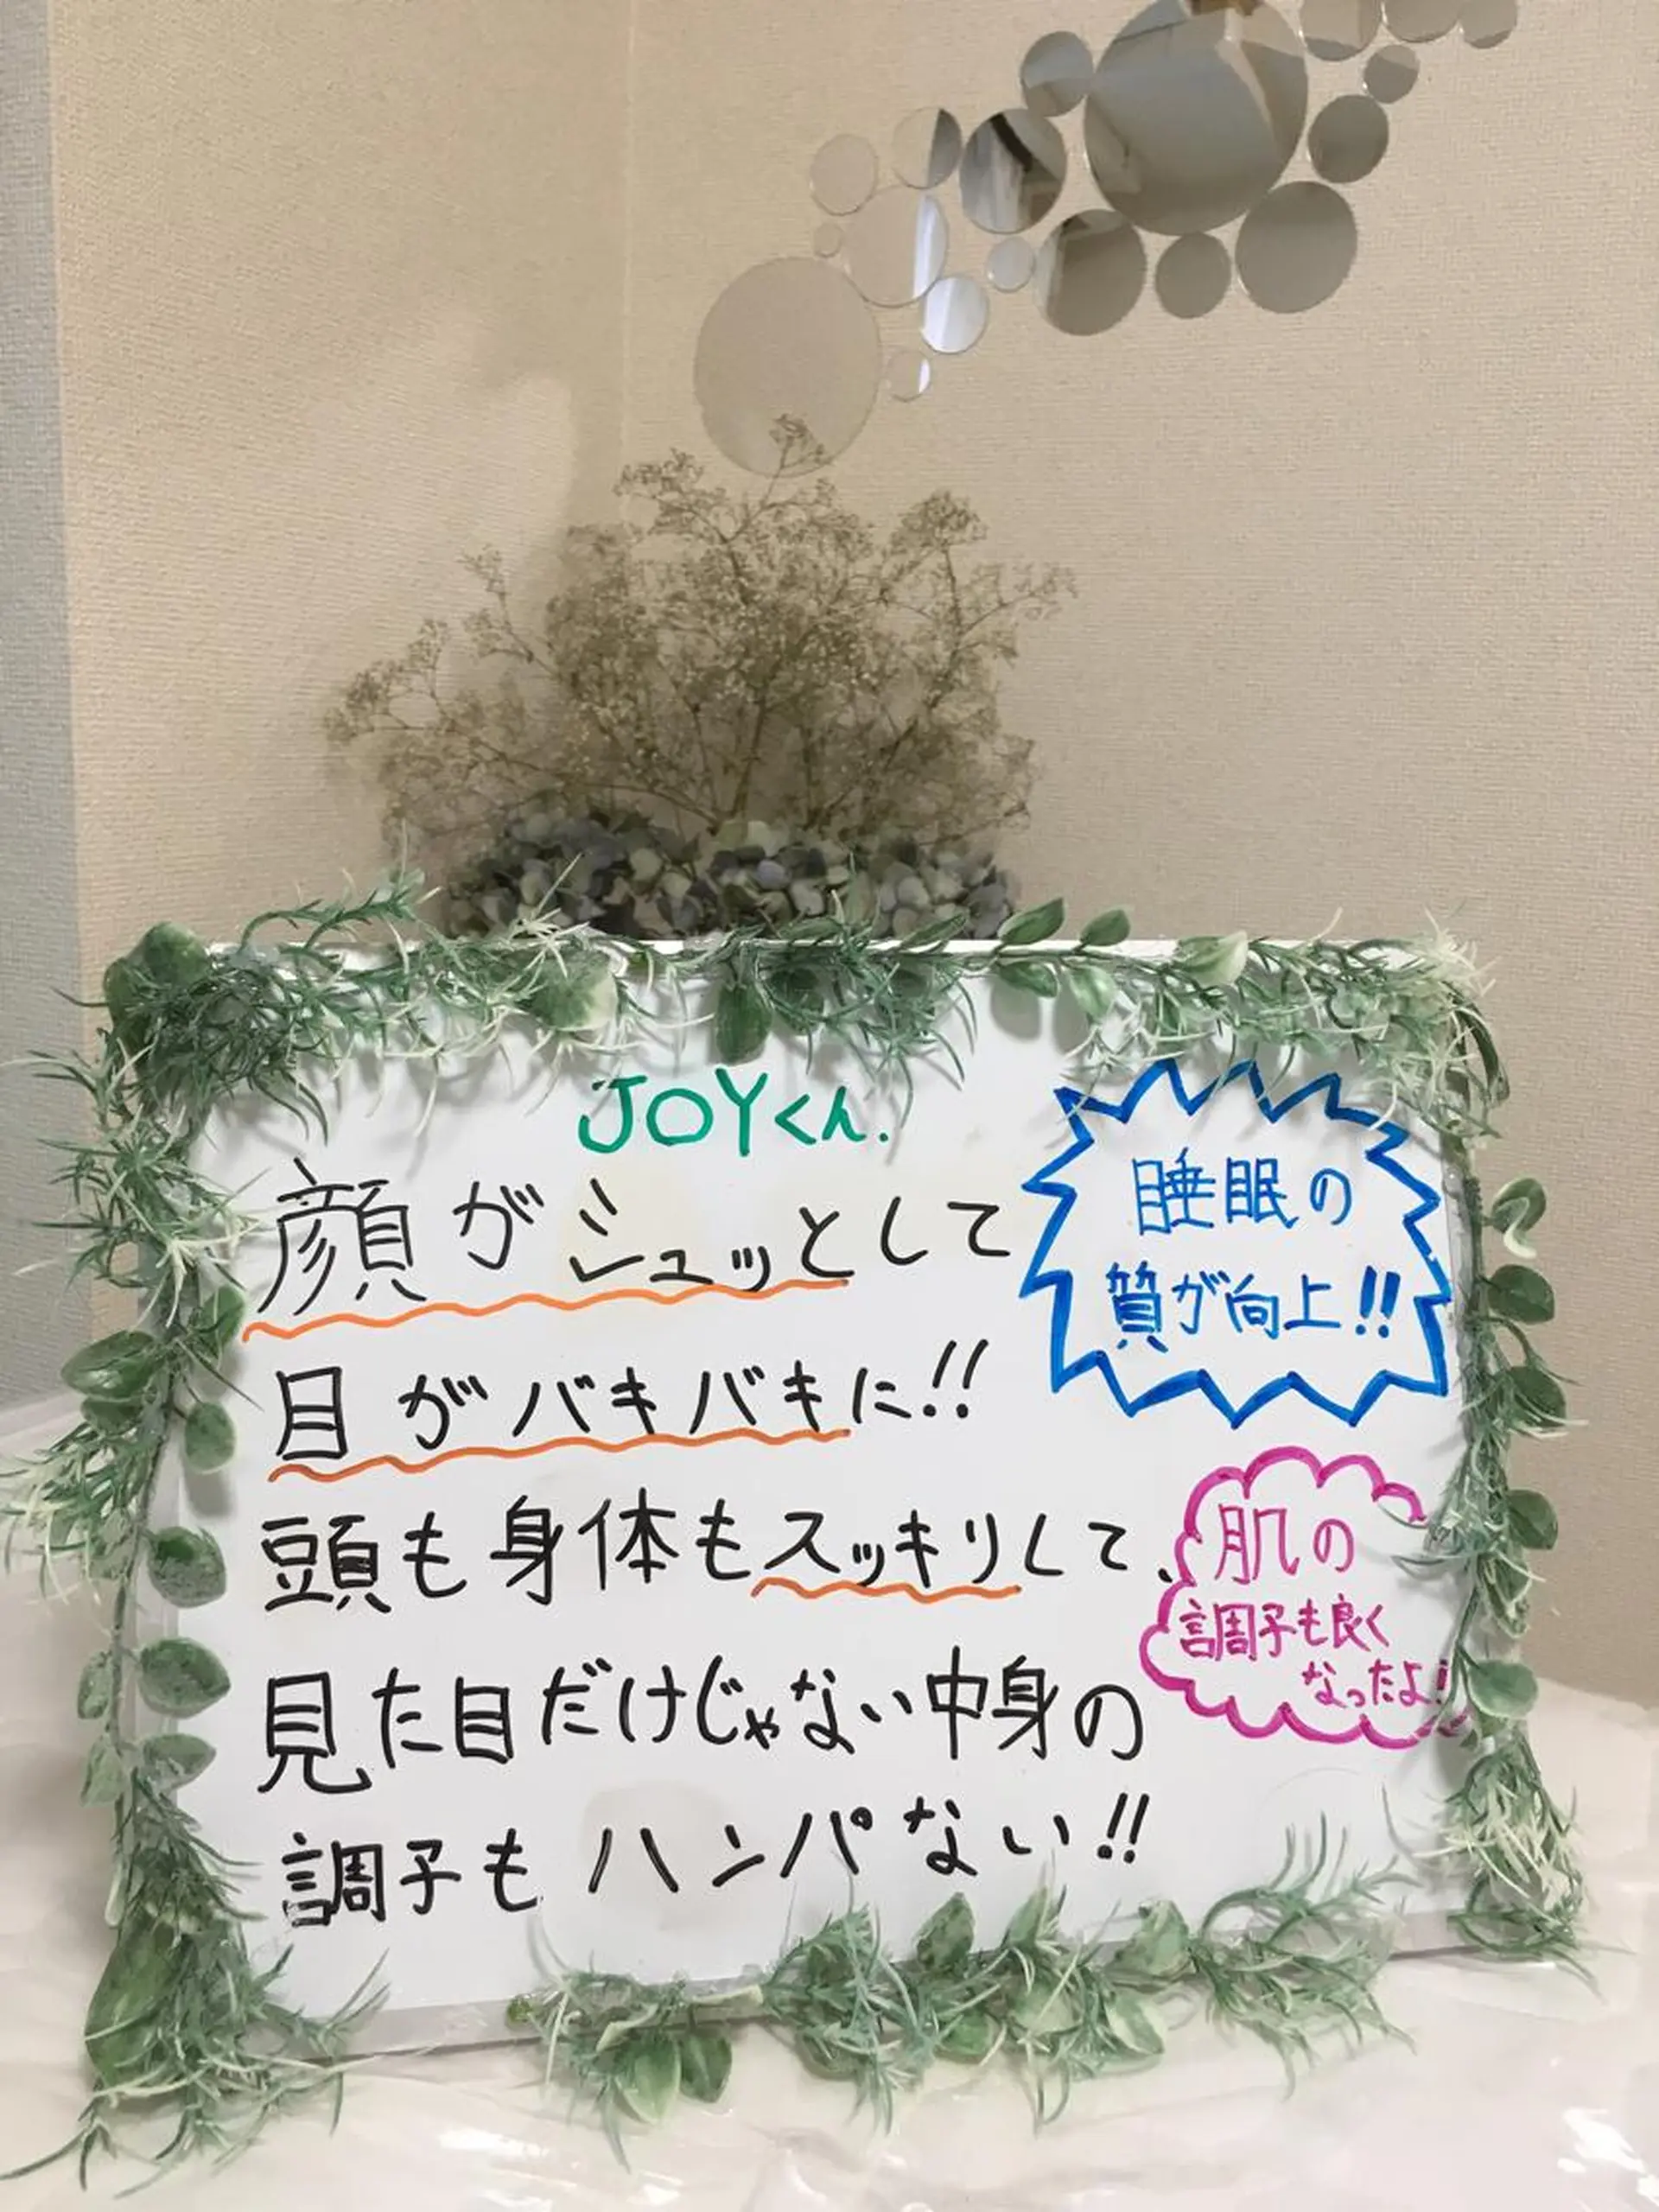 JOYくん.
顔がシュッとして
目がバキバキに!!
頭も身体もスッキリして、
見た目だけじゃない中身の
調子もハンパない!!
睡眠の
質が向上!!
肌の
調子も良く
なったよ!